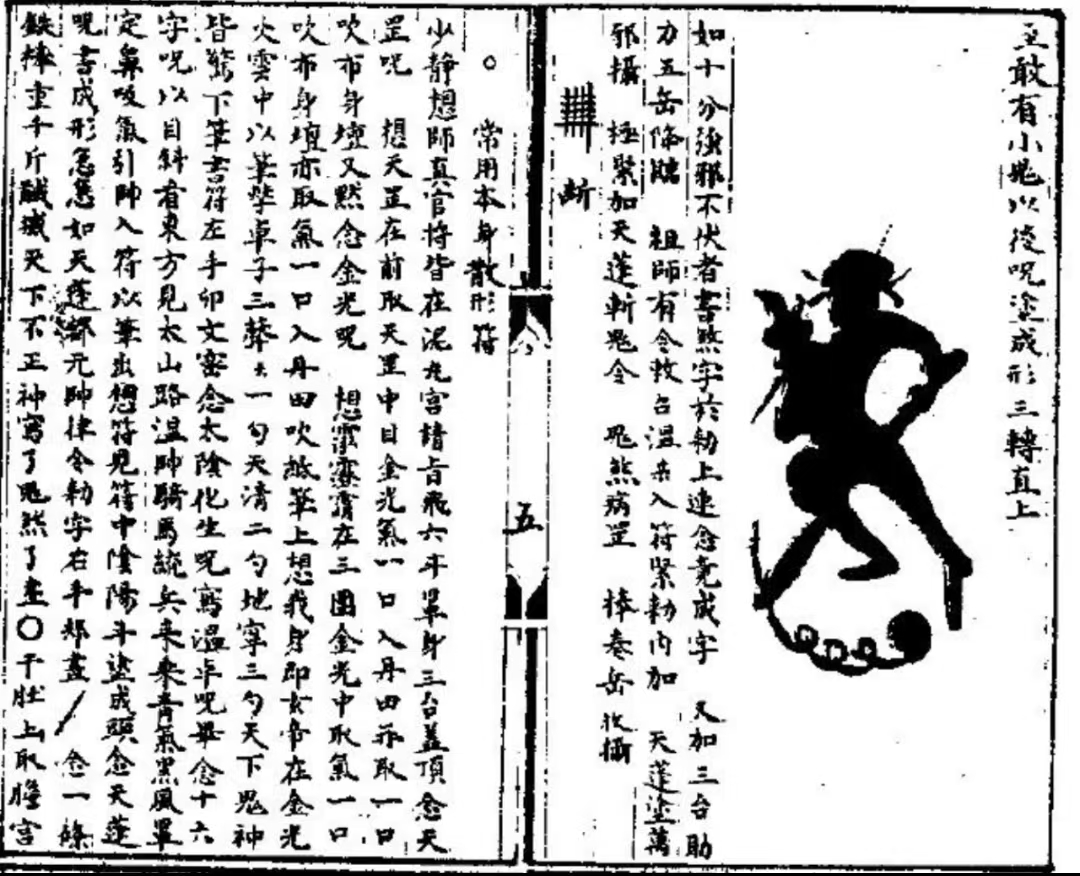 至敢有小鬼以後呪塗成形三轉直上
如十分強邪不伏者書煞字於勅上速念竟成字 又加三台助
力五岳降臨 祖師有令敕召溫來入符緊勅內加 天蓬塗萬
邪攝 極緊加天蓬斬鬼令 鬼煞病罡 棒奏岳收攝
斬
五
○ 常用本身散形符
少靜想師真官將皆在泥丸宮請旨飛六斗罩身三台蓋頂念天
罡呪 想天罡在前取天罡中目金光氣一口入丹田亦取一口
吹布身壇又默念金光呪 想霍審青在三團金光中取氣一口
吹布身壇亦取氣一口入丹田吹紙筆上想我身即玄帝在金光
火雲中以筆擊卓子三擊云一勺天清二勺地寧三勺天下鬼神
皆驚下筆書符左手卯文密念太陰化生呪寫溫字呪畢念十六
字呪以目斜看東方見太山路溫帥騎馬統兵來乘青氣黑風罩
定鼻吸氣引帥入符以筆出想符見符中陰陽斗塗成頭念天蓬
呪書成形急急如天蓬都元帥律令勅字右手 畫 念一條
鉄棒重千斤 滅天下不正神寫了鬼煞了畫○于肚上取膽宮